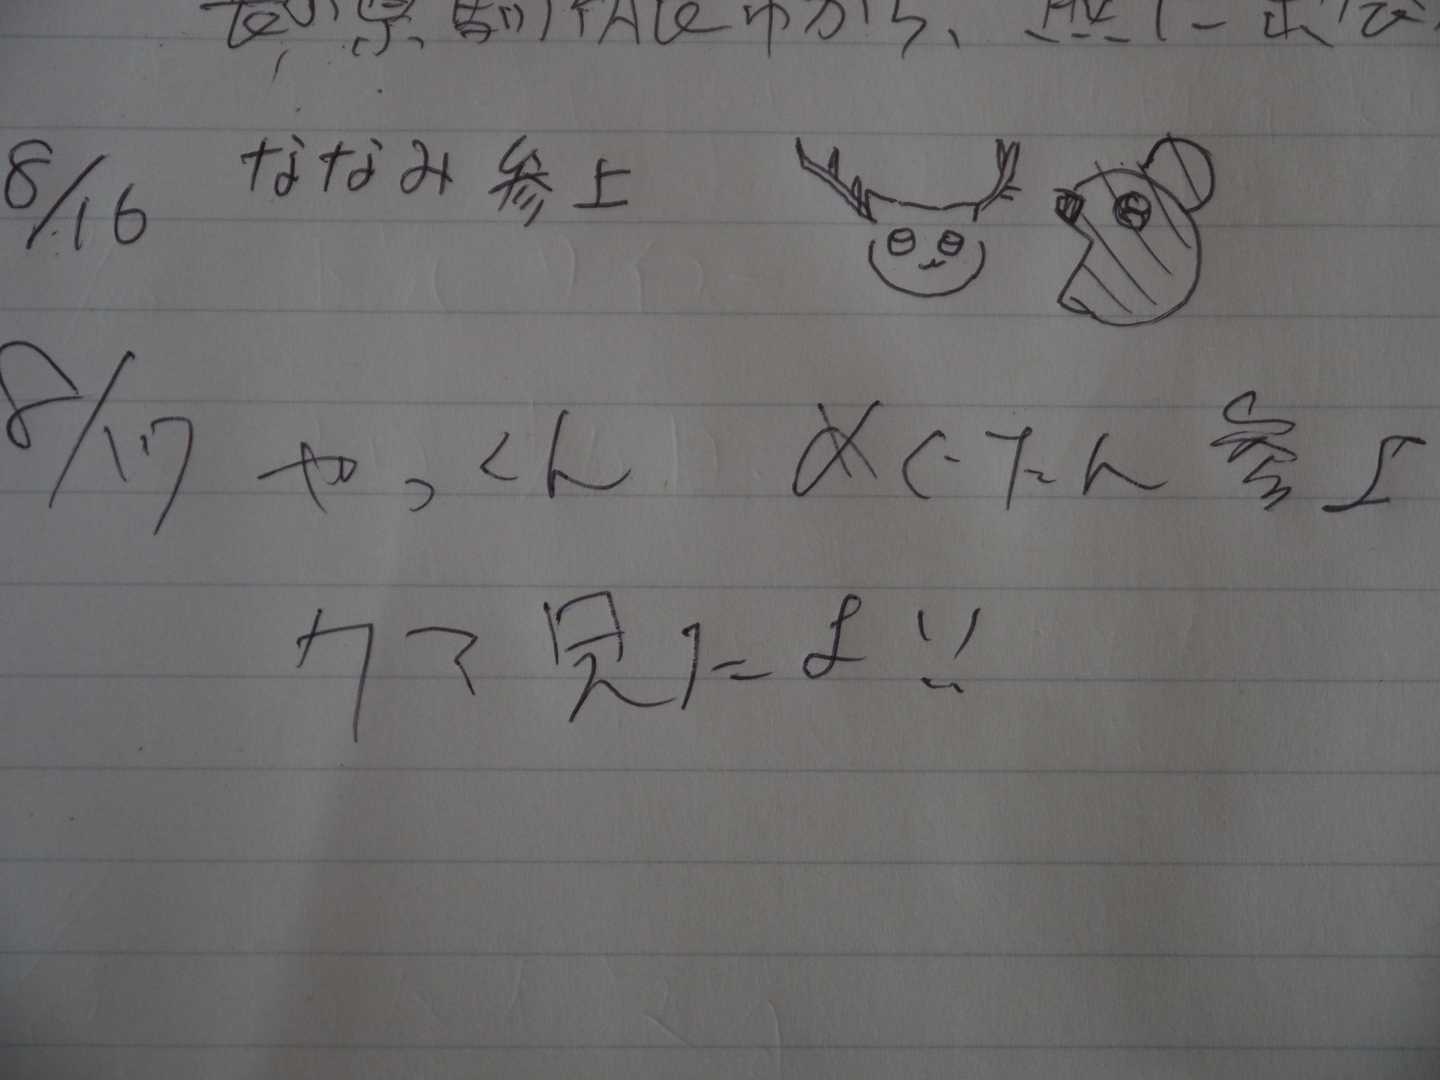 から、
8/16 ななみ参上
8/17 やっくん めぐたん参上
クマ見たよ!!